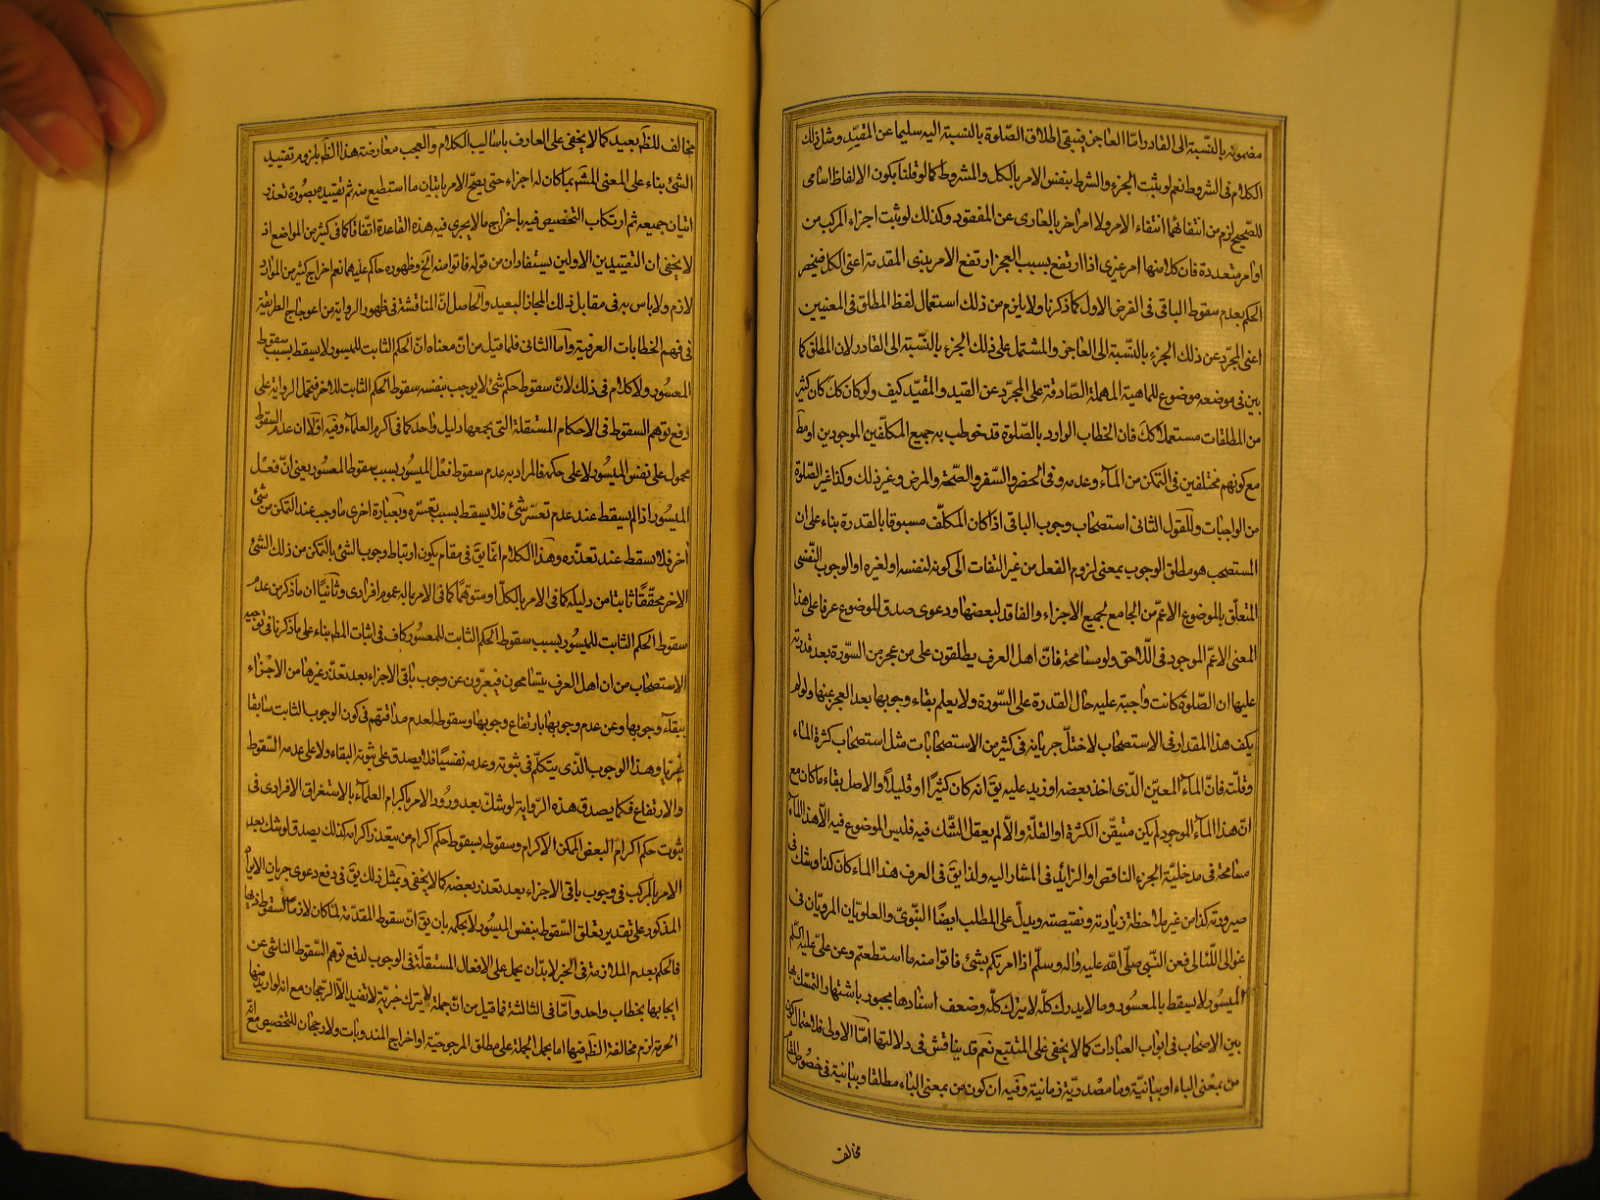 مضمونه بالنّسبة الى القادر وامّا العاجز فيبقى اطلاق الصّلوة بالنسبة اليه سليما عن المقيّد ومثل ذلك
الكلام فى الشروط نعم لو يثبت الجزء والشرط بنفس الامر بالكل والمشروط كما لو قلنا بكون الالفاظ اسامى
للصّحيح لزم من انتفائهما انتفاء الامر ولا امر اخر بالعارى عن المفقود وكذلك لو ثبت اجزاء المركب من
اوامر متعددة فان كلا منها امر غيرى اذا ارتفع بسبب العجز ارتفع الامر بذى المقدمة اعنى الكل فينحصر
الحكم بعدم سقوط الباقى فى الفرض الاول كما ذكرنا ولا يلزم من ذلك استعمال لفظ المطلق فى المعنيين
اعنى المجرّد عن ذلك الجزء بالنّسبة الى العاجز والمشتمل على ذلك الجزء بالنّسبة الى القادر لان المطلق كما
بين فى موضعه موضوع للماهية المهملة الصّادقة على المجرّد عن القيد والمقيّد كيف ولو كان كك كان كثير
من المطلقات مستعملا كك فان الخطاب الوارد بالصّلوة قد خوطب به جميع المكلّفين الموجودين او مط
مع كونهم مختلفين فى التمكن من الماء وعدمه وفى الحضر والسّفر والصّحة والمرض وغير ذلك وكذا غير الصّلوة
من الواجبات وللقول الثانى استصحاب وجوب الباقى اذا كان المكلّف مسبوقا بالقدرة بناء على ان
المستصحب هو مطلق الوجوب بمعنى لزوم الفعل من غير التفات الى كونه لنفسه او لغيره او الوجوب النّفسى
المتعلّق بالموضوع الاعمّ من الجامع لجميع الاجزاء والفاقد لبعضها ودعوى صدق الموضوع عرفا على هذا
المعنى الاعمّ الموجود فى اللّاحق ولو مسامحة فانّ اهل العرف يطلقون على من عجز من السّورة بعد قدرته
عليها ان الصّلوة كانت واجبة عليه حال القدرة على السّورة ولا يعلم بقاء وجوبها بعد العجز عنها ولو لم
يكف هذا المقدار فى الاستصحاب لاختلّ جريانه فى كثير من الاستصحابات مثل استصحاب كثرة الماء
وقلّته فانّ الماء المعيّن الّذى اخذ بعضه او زيد عليه يقال انه كان كثيرًا او قليلاً والاصل بقاء ما كان مع
انّ هذا الماء الموجود لم يكن متيقّن الكثرة او القلّة والّا لم يعقل الشّك فيه فليس الموضوع فيه الّا هذا الماء
مسامحة فى مدخليّة الجزء الناقص او الزائد فى المشار اليه ولذا يق فى العرف هذا الماء كان كذا وشك فى
صيرورته كذا من غير ملاحظة زيادته ونقيصته ويدلّ على المطلب ايضًا النّبوىّ والعلويّان المرويّان فى
غوالى اللّئالى فعن النّبى صلّى اللّه عليه واله وسلّم اذا امرتكم بشئ فاتوا منه ما استطعتم وعن علىّ عليه السّلم
الميسور لا يسقط بالمعسور وما لا يدرك كلّه لا يترك كلّه وضعف اسنادها مجبور باشتهار التمسّك بها
بين الاصحاب فى ابواب العبادات كما لا يخفى على المتتبع نعم قد يناقش فى دلالتها امّا الاولى فلاحتمال كون
من بمعنى الباء او بيانيّة وما مصدريّة زمانية وفيه ان كون من بمعنى الباء مطلقا وبيانية فى خصوص المقام
مخالف
مخالف للظ بعيد كما لا يخفى على العارف باساليب الكلام والعجب معارضة هذا الظ بلزوم تقييد
الشئ بناء على المعنى المشهور بما كان له اجزاء حتى يصحّ الامر باتيان ما استطيع منه ثم تقييده بصورة تعذر
اتيان جميعه ثم ارتكاب التخصيص فيه باخراج ما لا يجرى فيه هذه القاعدة اتفاقا كما فى كثير من المواضع اذ
لا يخفى ان التقييدين الاولين يستفادان من قوله فاتوا منه الخ وظهوره حاكم عليهما نعم اخراج كثير من الموارد
لازم ولا باس به فى مقابل ذلك المجاز البعيد والحاصل انّ المناقشة فى ظهور الرواية من اعوجاج الطريقة
فى فهم الخطابات العرفية وامّا الثانى فلما قيل من انّ معناه انّ الحكم الثابت للميسور لا يسقط بسبب سقوط
المعسور ولا كلام فى ذلك لانّ سقوط حكم شئ لا يوجب بنفسه سقوط الحكم الثابت للاخر فتحمل الرواية على
دفع توهم السقوط فى الاحكام المستقلة التى يجمعها دليل واحد كما فى اكرم العلماء وفيه اوّلا ان عدم السقوط
محمول على نفس الميسور لا على حكمه فالمراد به عدم سقوط فعل الميسور بسبب سقوط المعسور يعنى انّ فعل
الميسور اذا لم يسقط عند عدم تعسّر شئ فلا يسقط بسبب تعسّره وبعبارة اخرى ما وجب عند التمكن من شئ
اخر فلا يسقط عند تعذّره وهذا الكلام انّما يق فى مقام يكون ارتباط وجوب الشئ بالتمكن من ذلك الشئ
الاخر محقّقًا ثابتا من دليله كما فى الامر بالكلّ او متوهّمًا كما فى الامر بماله عموم افرادى وثانيًا ان ما ذكر من عدم
سقوط الحكم الثابت للميسور بسبب سقوط الحكم الثابت للمعسور كاف فى اثبات المط بناء على ما ذكرنا فى توجيه
الاستصحاب من ان اهل العرف يتسامحون فيعبّرون عن وجوب باقى الاجزاء بعد تعذّر غيرها من الاجزاء
ببقاء وجوبها وعن عدم وجوبها بارتفاع وجوبها وسقوطه لعدم مداقتهم فى كون الوجوب الثابت سابقا
غيريّا وهذا الوجوب الّذى يتكلّم فى ثبوته وعدمه نفسيًّا فلا يصدق على ثبوته البقاء ولا على عدمه السّقوط
والارتفاع فكما يصدق هذه الرّواية لو شكّ بعد ورود الامر باكرام العلماء بالاستغراق الافرادى فى
ثبوت حكم اكرام البعض الممكن الاكرام وسقوطه بسقوط حكم اكرام من يتعذر اكرامه كذلك يصدق لو شك بعد
الامر بالمركب فى وجوب باقى الاجزاء بعد تعذر بعضه كما لا يخفى وبمثل ذلك يق فى دفع دعوى جريان الايراد
المذكور على تقدير تعلق السّقوط بنفس الميسور لا بحكمه بان يق انّ سقوط المقدّمة لمّا كان لازما لسقوط ذيها
فالحكم بعدم الملازمة فى الخبر لا بدّ ان يحمل على الافعال المستقلّة فى الوجوب لدفع توهم السّقوط الناشى عن
ايجابها بخطاب واحد وامّا فى الثالثة فما قيل من انّ جملة لا يترك خبريّة لا تفيد الّا الرّجحان مع انه لو اريد منها
الحرمة لزم مخالفة الظ فيها اما بحمل الجملة على مطلق المرجوحيّة او اخراج المندوبات ولا رجحان للتخصيص مع انّه